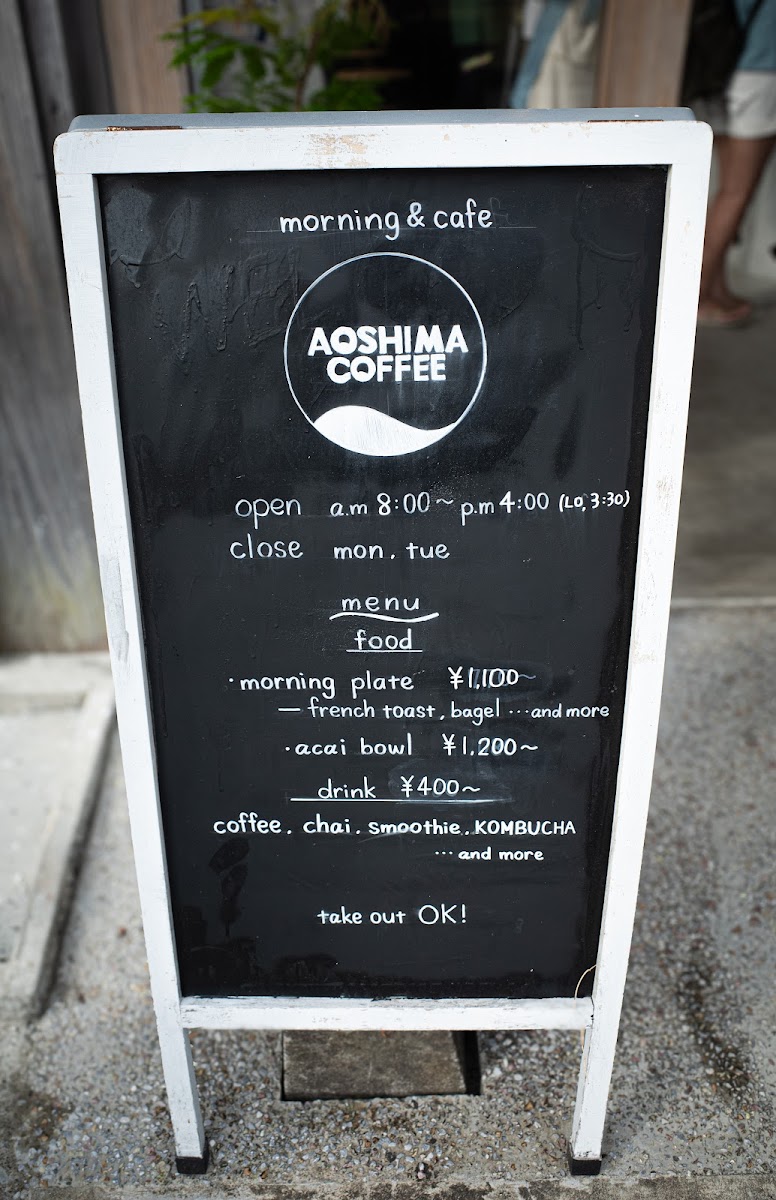 morning & cafe
AOSHIMA
COFFEE
open a.m 8:00~ p.m 4:00 (LO, 3:30)
close mon. tue
menu
food
・morning plate ¥1,100~
— french toast, bagel …and more
・acai bowl ¥1,200~
drink ¥400~
coffee. chai. smoothie. KOMBUCHA
…and more
take out OK!